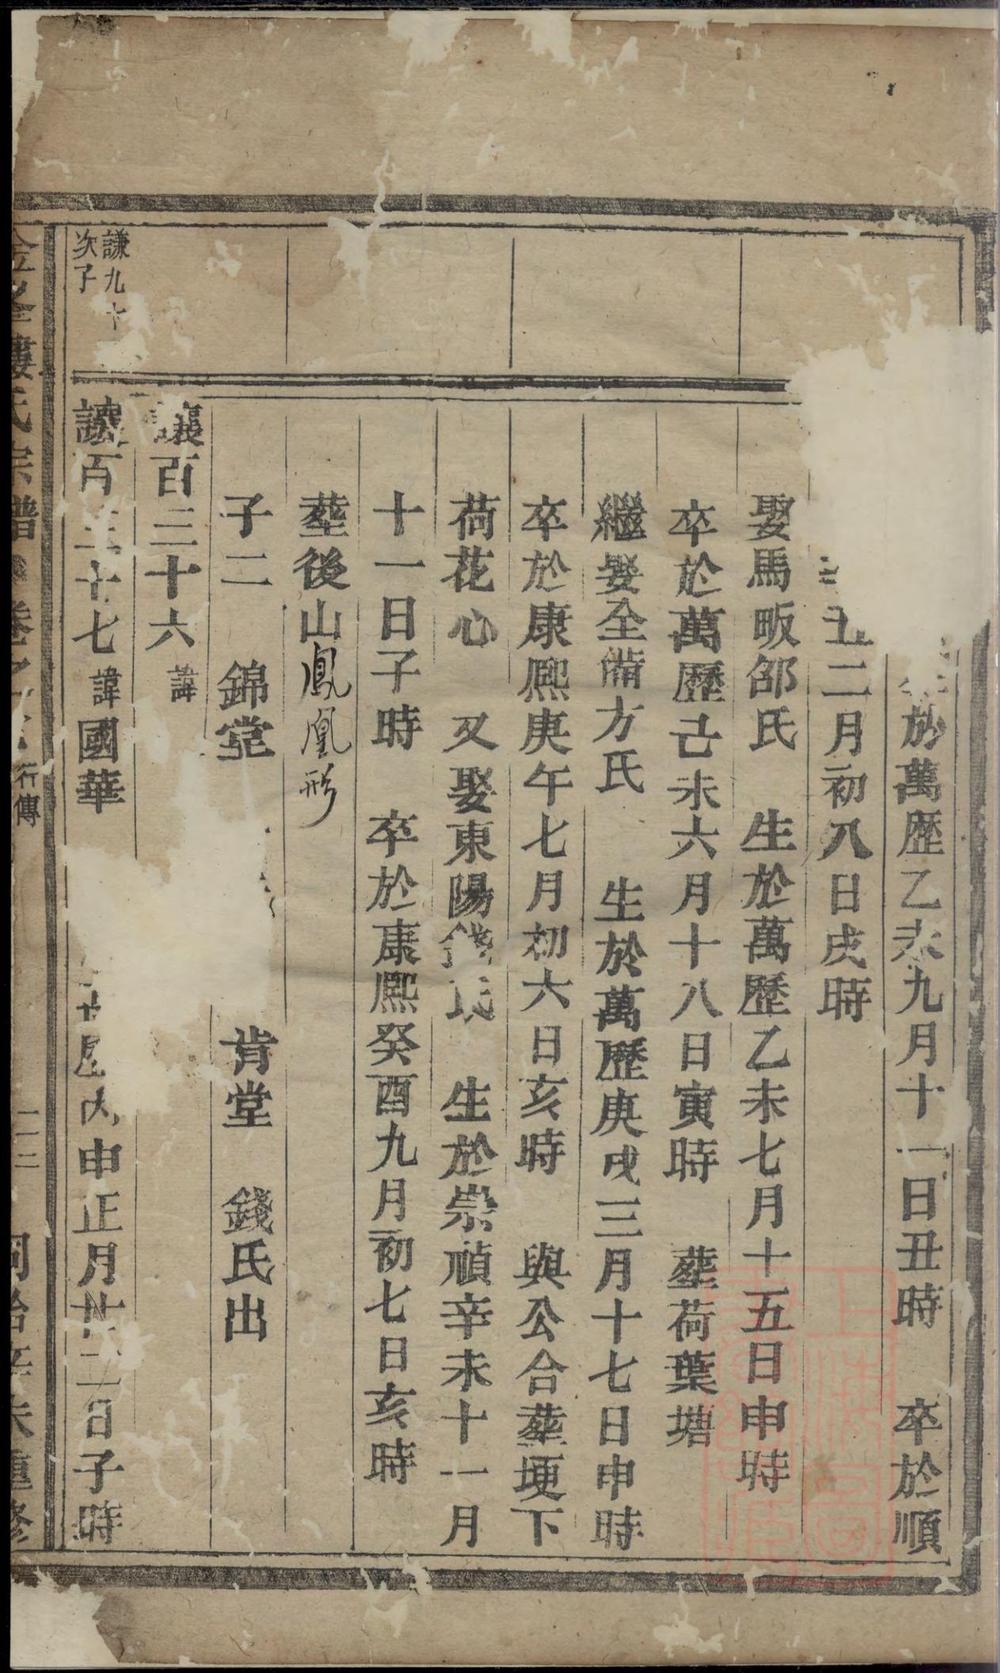 於萬歷乙未九月十一日丑時　卒於順
丑二月初八日戌時
娶馬畈邵氏　生於萬歷乙未七月十五日申時
卒於萬歷己未六月十八日寅時　塟荷葉塘
繼娶全備方氏　生於萬歷庚戌三月十七日申時
卒於康熙庚午七月初六日亥時　與公合塟埂下
荷花心　又娶東陽錢氏　生於崇禎辛未十一月
十一日子時　卒於康熙癸酉九月初七日亥時
塟後山鳳凰形
子二　錦堂　肯堂　錢氏出
讓百三十六　諱
謙九十
次子
讓百三十七　諱國華　申正月廿二日子時
婁氏宗譜　卷之　行傳　二三　同治辛未重修